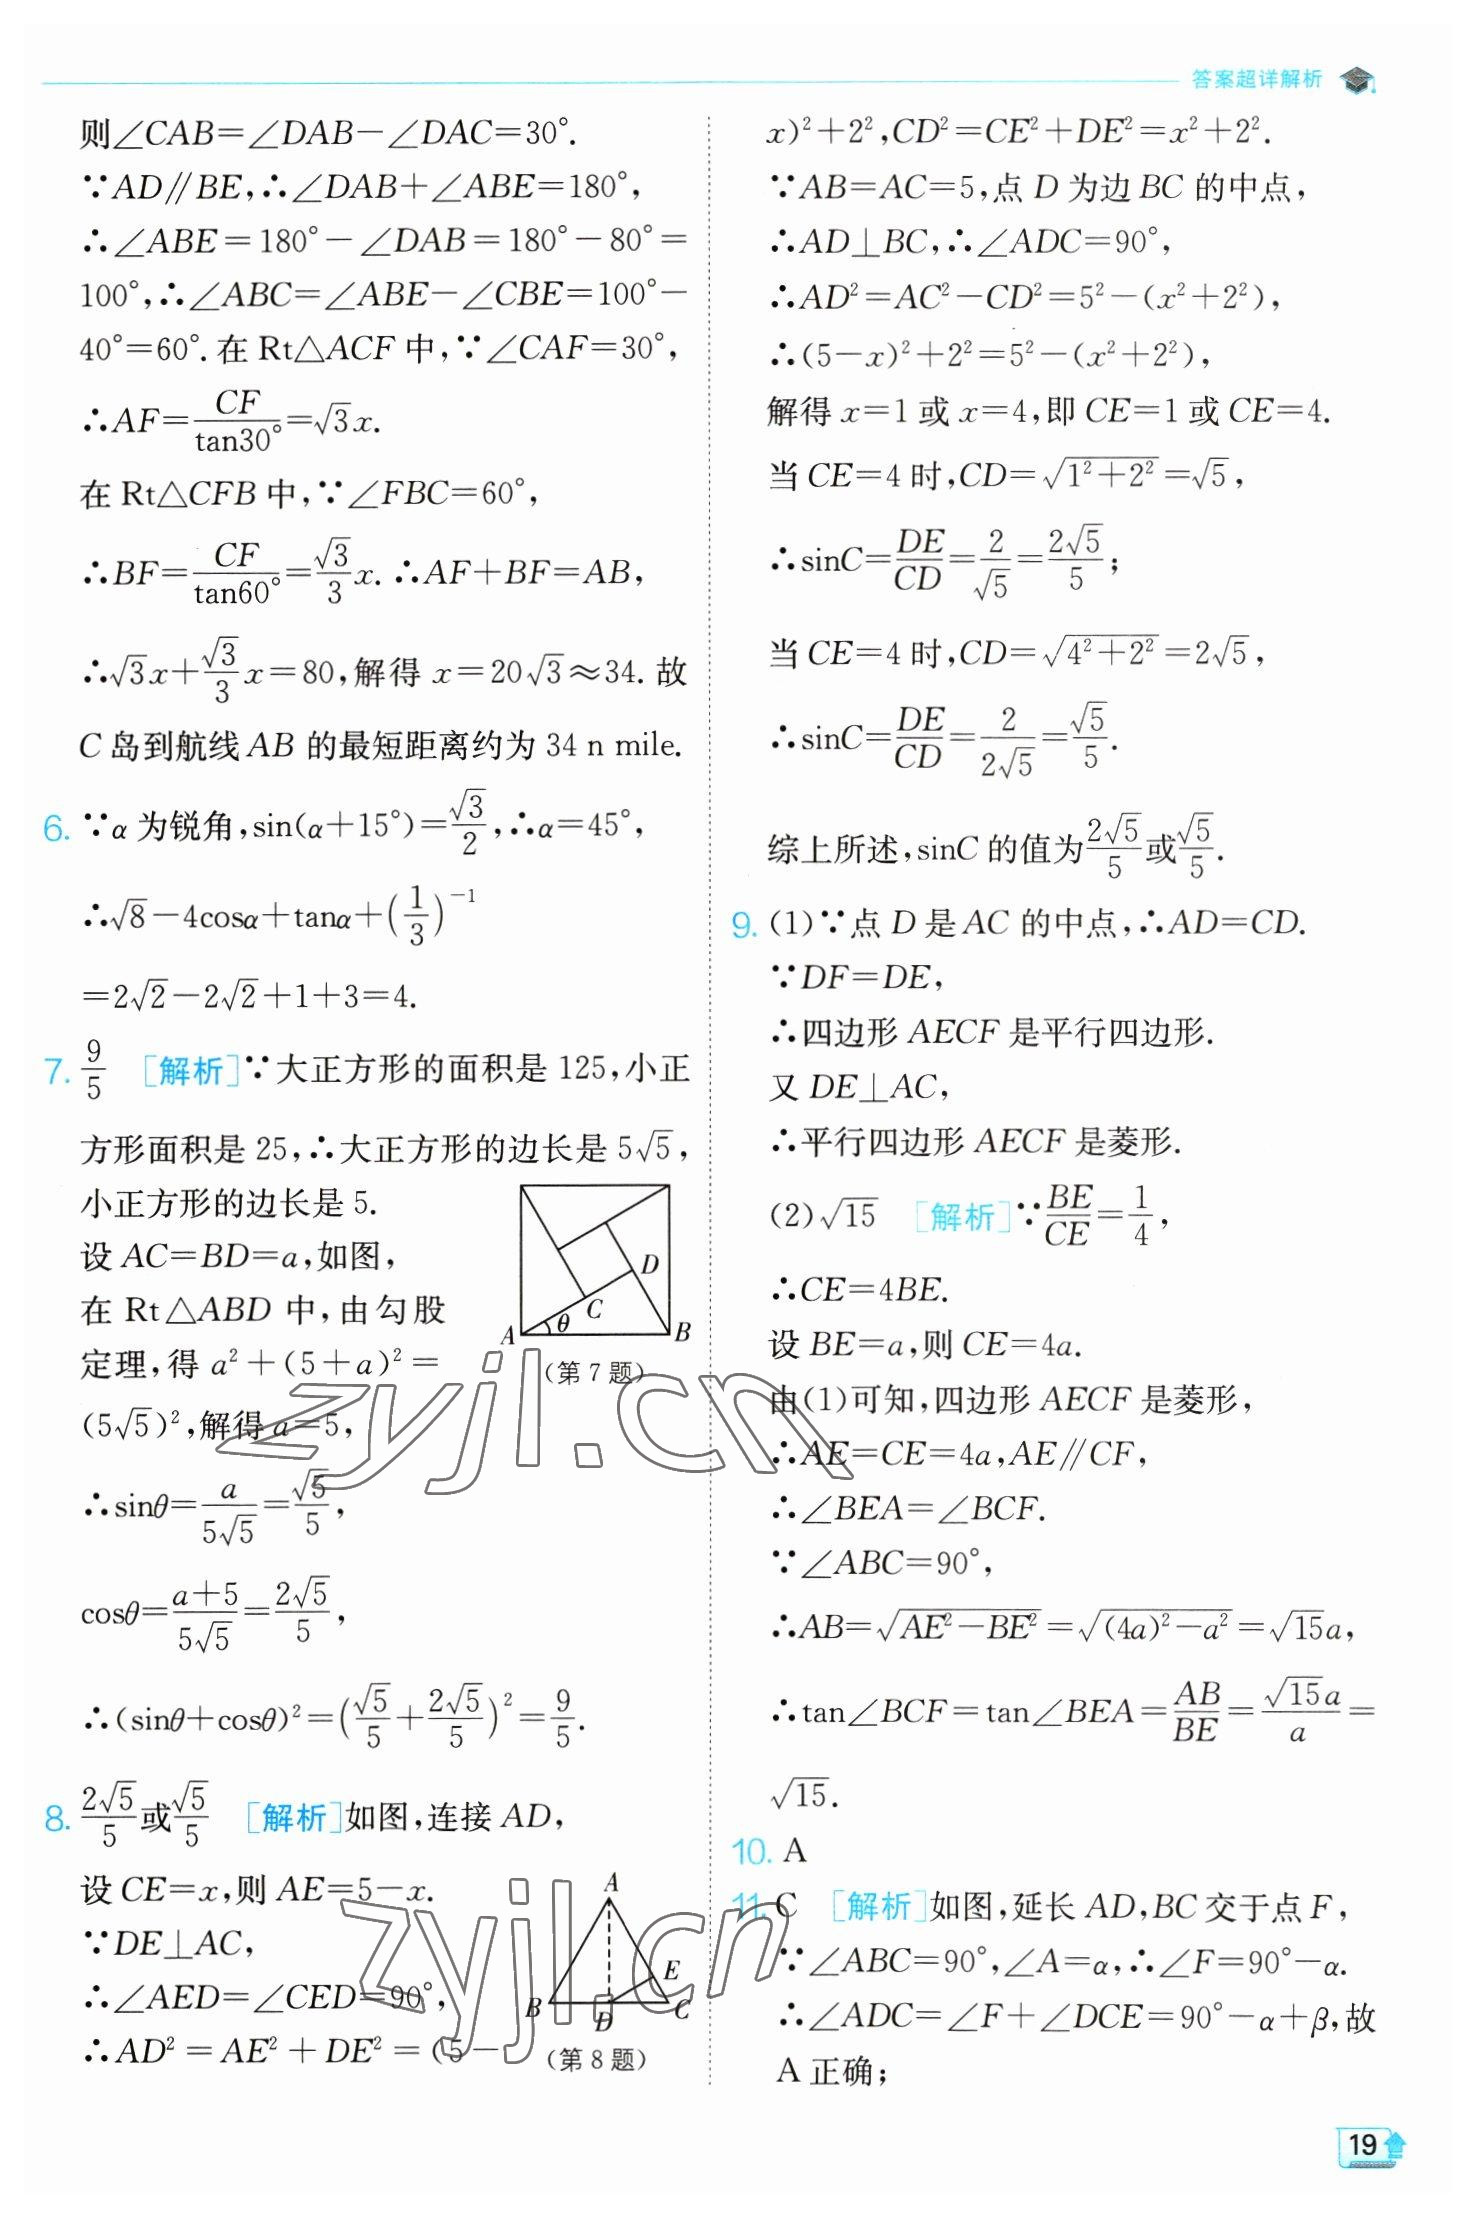 答案超详解析
则∠CAB=∠DAB-∠DAC=30°.
∵AD∥BE,∴∠DAB+∠ABE=180°,
∴∠ABE=180°-∠DAB=180°-80°=
100°,∴∠ABC=∠ABE-∠CBE=100°-
40°=60°.在 Rt△ACF 中,∵∠CAF=30°,
∴AF=CF/tan30°=√3x.
在 Rt△CFB 中,∵∠FBC=60°,
∴BF=CF/tan60°=√3/3x.∴AF+BF=AB,
∴√3x+√3/3x=80,解得 x=20√3≈34.故
C 岛到航线 AB 的最短距离约为 34 n mile.
6. ∵α 为锐角,sin(α+15°)=√3/2,∴α=45°,
∴√8-4cosα+tanα+(1/3)⁻¹
=2√2-2√2+1+3=4.
7. 9/5 [解析]∵大正方形的面积是 125,小正
方形面积是 25,∴大正方形的边长是 5√5,
小正方形的边长是 5.
设 AC=BD=a,如图,
在 Rt△ABD 中,由勾股
定理,得 a²+(5+a)²=
(5√5)²,解得 a=5,
D
C
A
θ
B
(第 7 题)
∴sinθ=a/5√5=√5/5,
cosθ=(a+5)/5√5=2√5/5,
∴(sinθ+cosθ)²=(√5/5+2√5/5)²=9/5.
8. 2√5/5或√5/5 [解析]如图,连接 AD,
设 CE=x,则 AE=5-x.
∵DE⊥AC,
∴∠AED=∠CED=90°,
∴AD²=AE²+DE²=(5-
A
E
B
D
C
(第 8 题)
x)²+2²,CD²=CE²+DE²=x²+2².
∵AB=AC=5,点 D 为边 BC 的中点,
∴AD⊥BC,∴∠ADC=90°,
∴AD²=AC²-CD²=5²-(x²+2²),
∴(5-x)²+2²=5²-(x²+2²),
解得 x=1 或 x=4,即 CE=1 或 CE=4.
当 CE=4 时,CD=√(1²+2²)=√5,
∴sinC=DE/CD=2/√5=2√5/5;
当 CE=4 时,CD=√(4²+2²)=2√5,
∴sinC=DE/CD=2/2√5=√5/5.
综上所述,sinC 的值为2√5/5或√5/5.
9. (1)∵点 D 是 AC 的中点,∴AD=CD.
∵DF=DE,
∴四边形 AECF 是平行四边形.
又 DE⊥AC,
∴平行四边形 AECF 是菱形.
(2)√15 [解析]∵BE/CE=1/4,
∴CE=4BE.
设 BE=a,则 CE=4a.
由(1)可知,四边形 AECF 是菱形,
∴AE=CE=4a,AE∥CF,
∴∠BEA=∠BCF.
∵∠ABC=90°,
∴AB=√(AE²-BE²)=√((4a)²-a²)=√15a,
∴tan∠BCF=tan∠BEA=AB/BE=√15a/a=
√15.
10. A
11. C [解析]如图,延长 AD,BC 交于点 F,
∵∠ABC=90°,∠A=α,∴∠F=90°-α.
∴∠ADC=∠F+∠DCE=90°-α+β,故
A 正确;
zyjl.cn
zyjl.cn
19